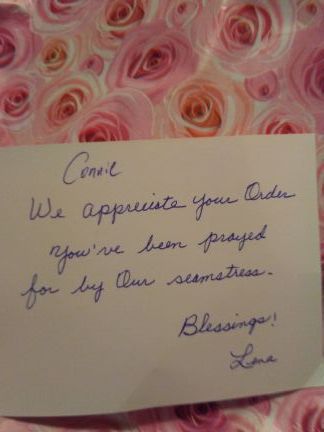 Connie
We appreciate your Order
You've been prayed
for by Our seamstress.
Blessings!
Lena